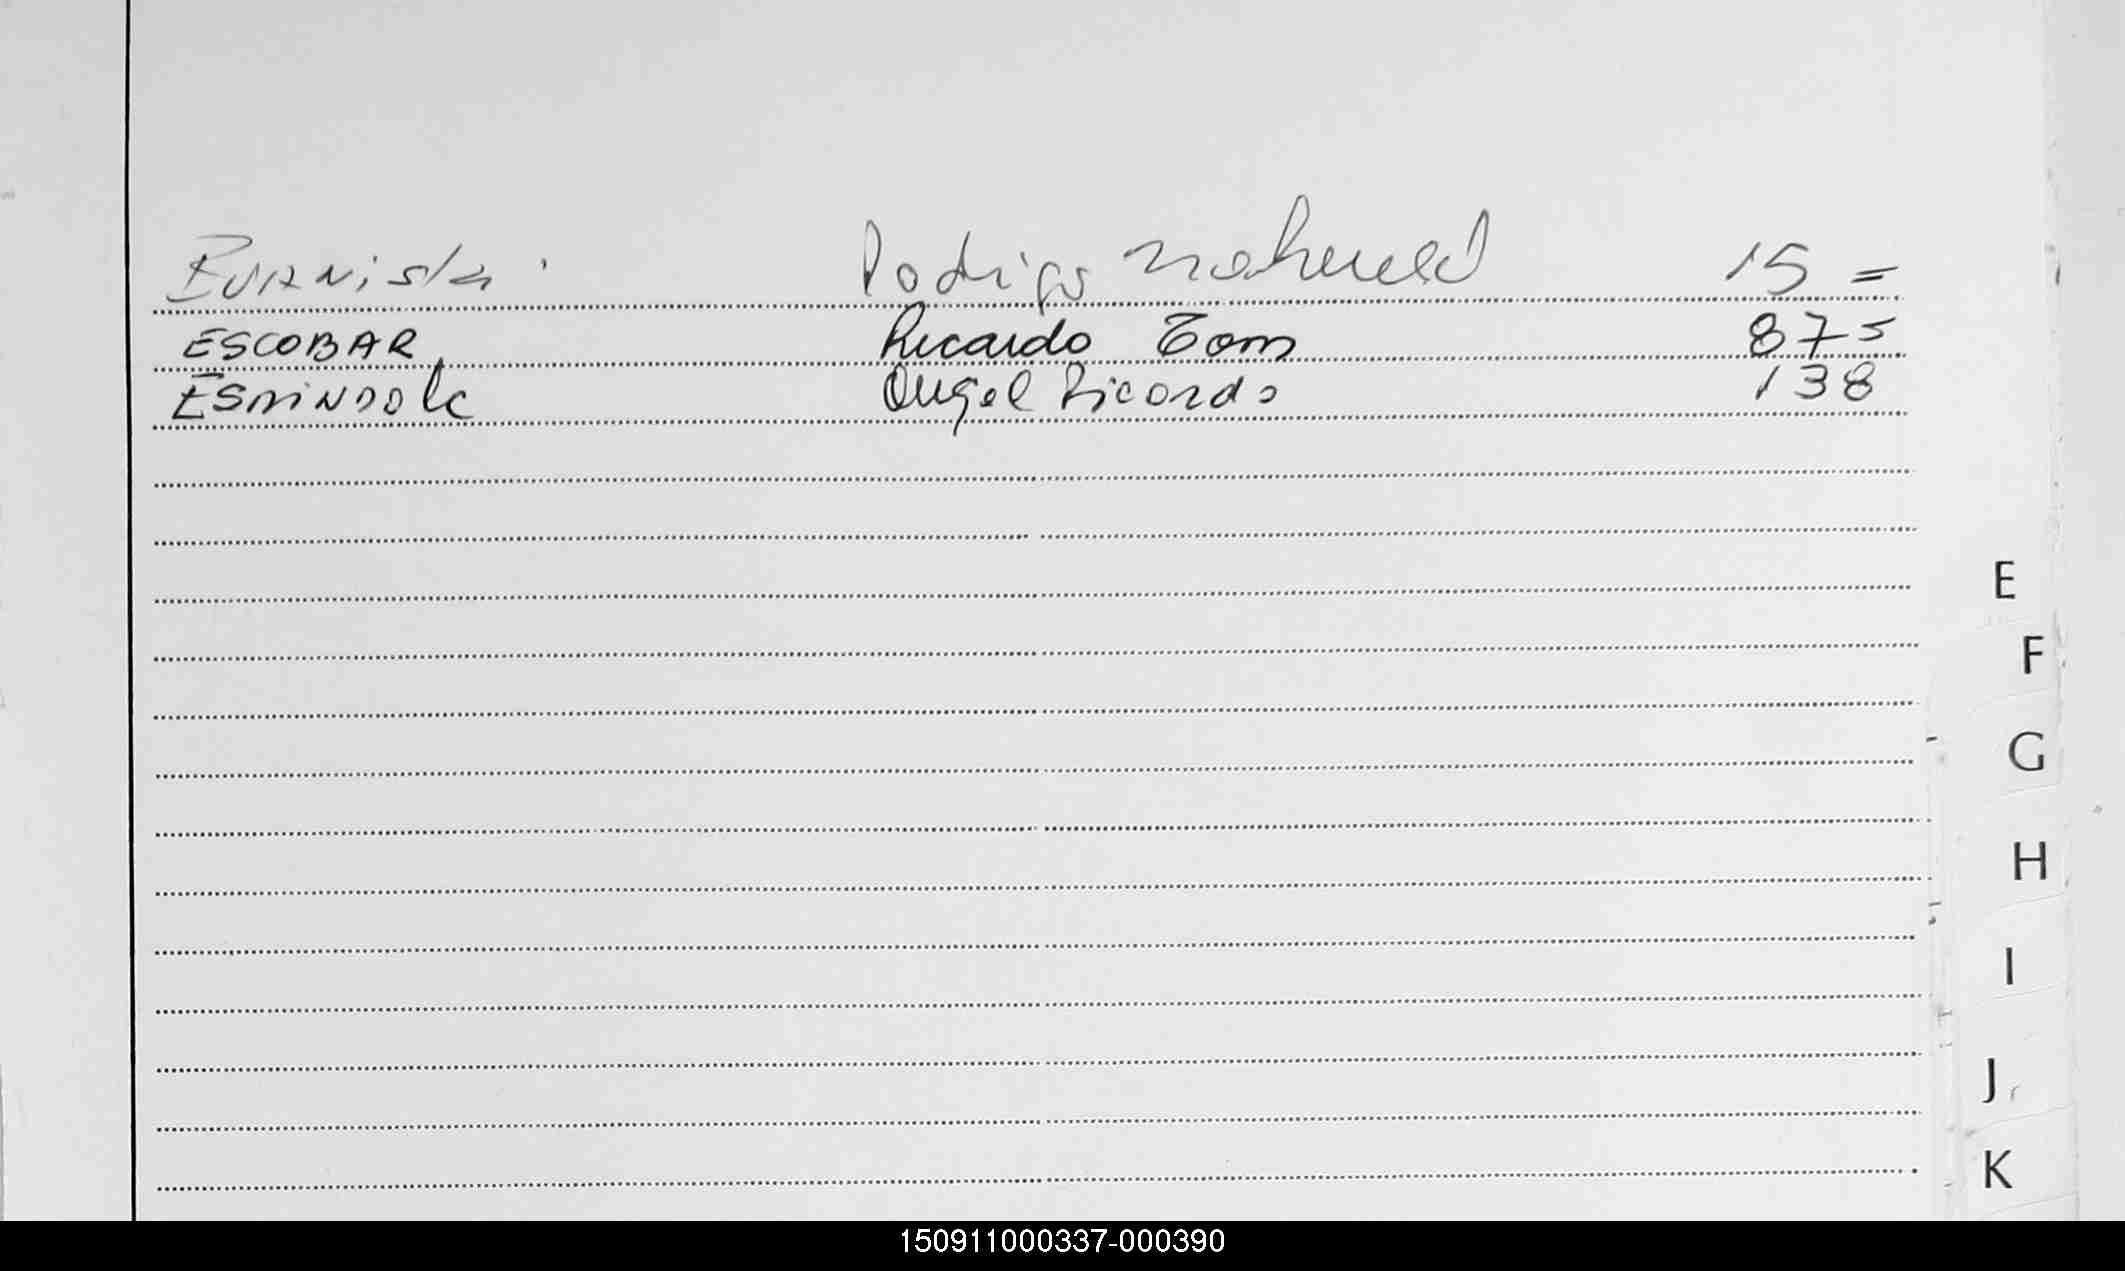 Evanista Rodrigo nahuel 15 =
ESCOBAR Ricardo Tom 875
ESPINDOLA Angel Ricardo 138
E
F
G
H
I
J
K
150911000337-000390